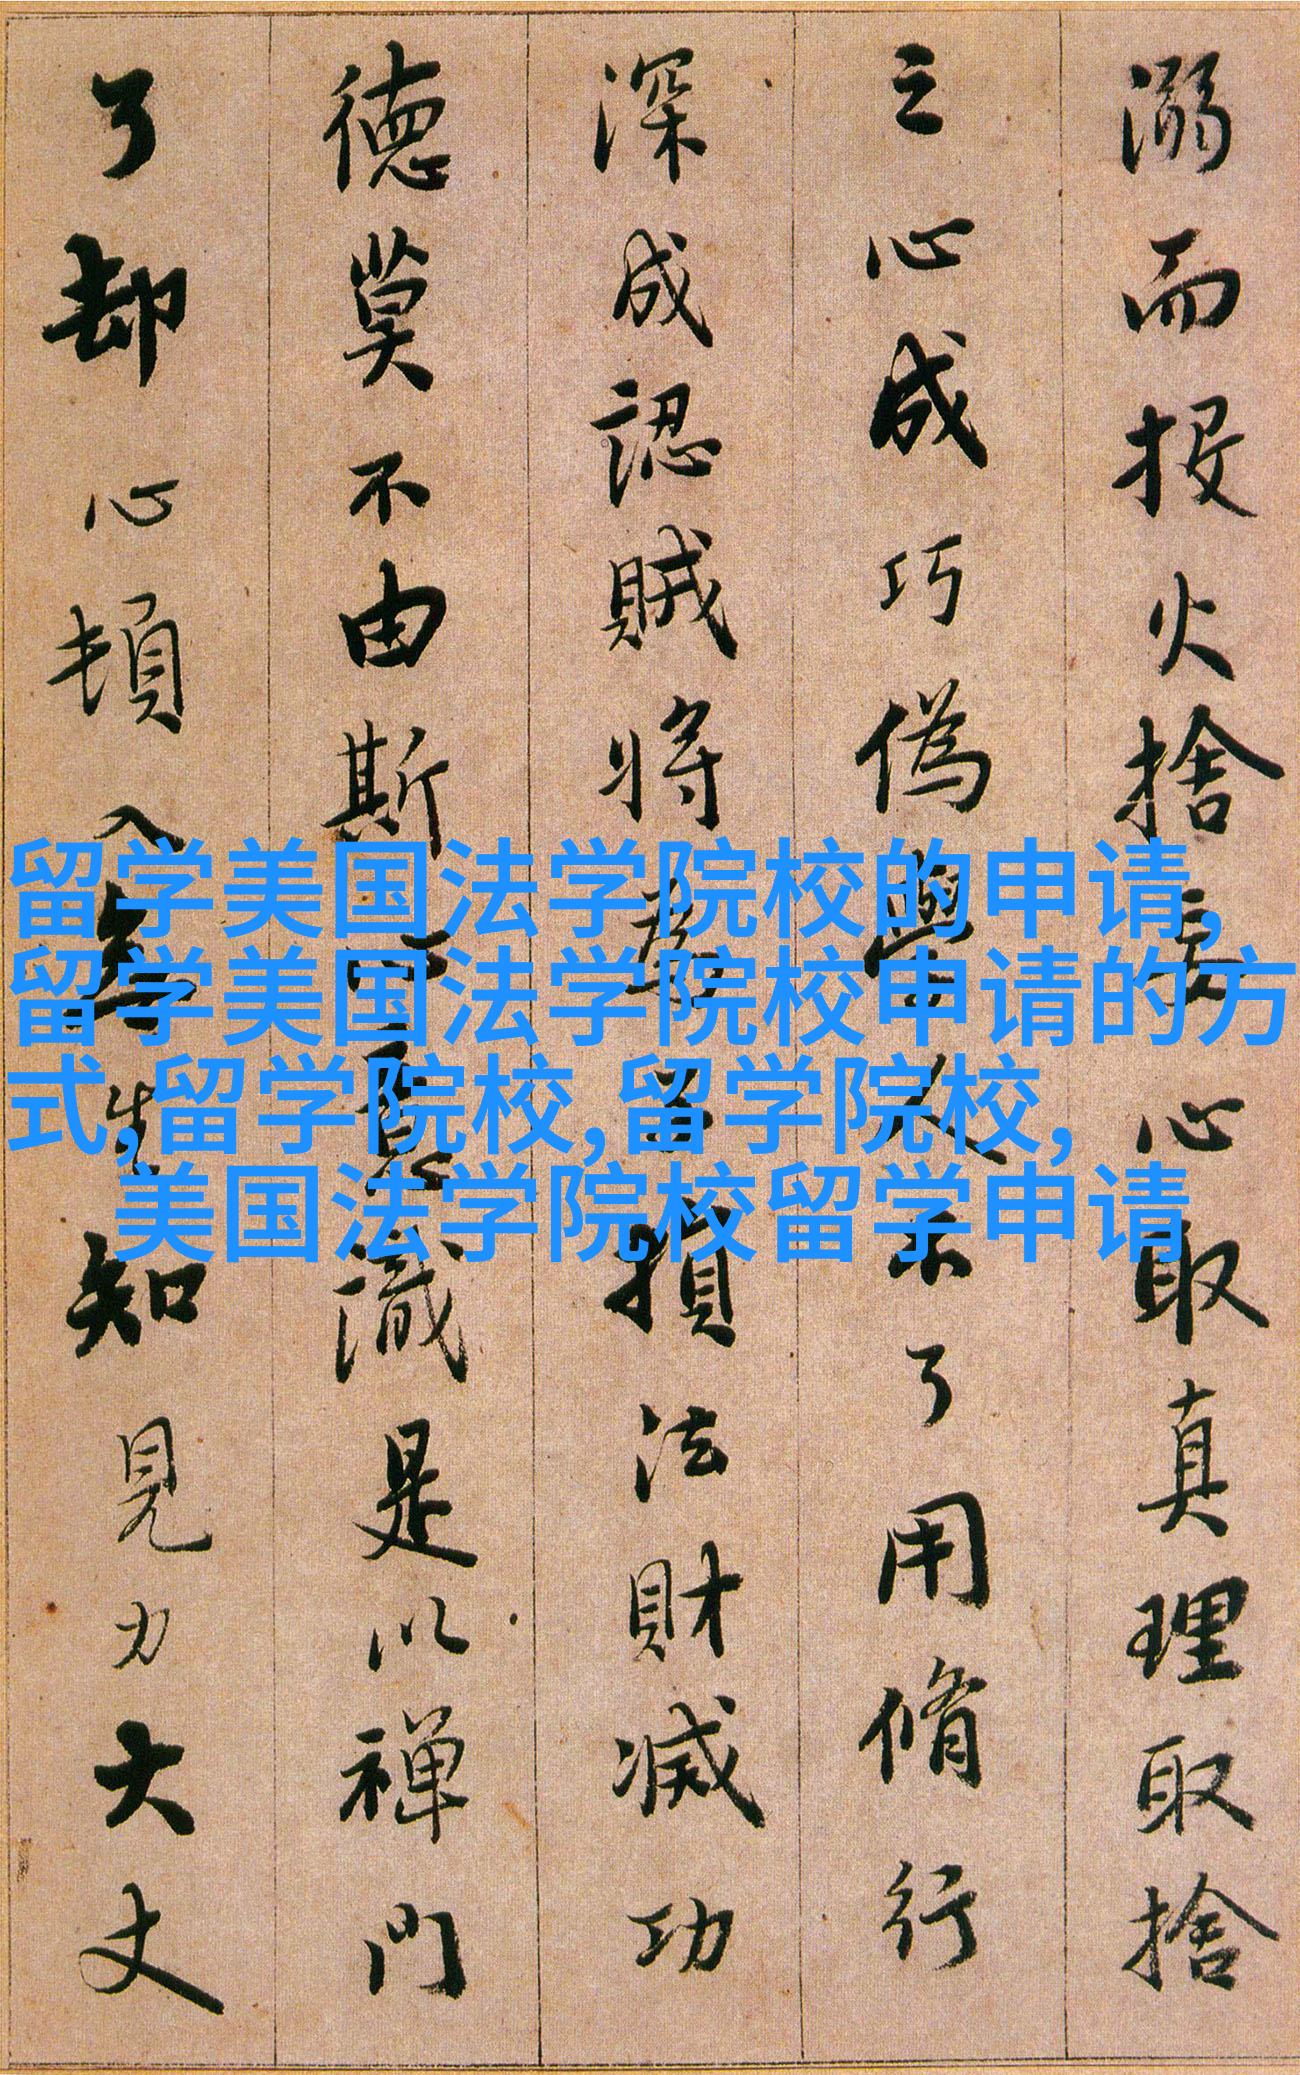 溺而投火捨妄心取真理取捨
之心成巧偽學人不了用脩行
深成認賊將為子損法財滅功
德莫不由斯心意識是以禪門
了却心頓入無生知見力大丈
留学美国法学院校的申请,
留学美国法学院校申请的方
式,留学院校,留学院校,
美国法学院校留学申请